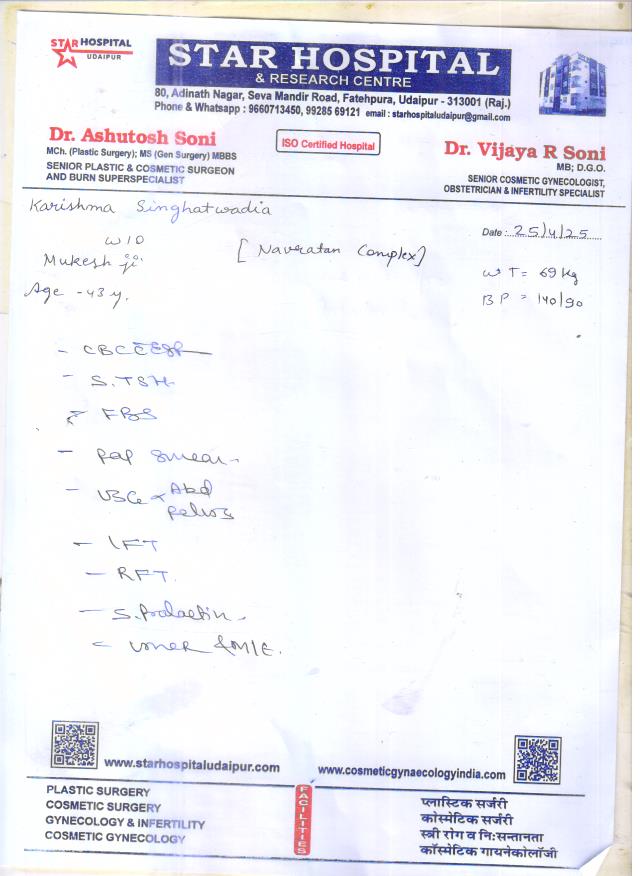 STAR HOSPITAL
UDAIPUR
STAR HOSPITAL
& RESEARCH CENTRE
80, Adinath Nagar, Seva Mandir Road, Fatehpura, Udaipur - 313001 (Raj.)
Phone & Whatsapp : 9660713450, 99285 69121 email : starhospitaludaipur@gmail.com
Dr. Ashutosh Soni
MCh. (Plastic Surgery); MS (Gen Surgery) MBBS
SENIOR PLASTIC & COSMETIC SURGEON
AND BURN SUPERSPECIALIST
ISO Certified Hospital
Dr. Vijaya R Soni
MB; D.G.O.
SENIOR COSMETIC GYNECOLOGIST,
OBSTETRICIAN & INFERTILITY SPECIALIST
Karishma Singhatwadia
Date : 25/4/25
W/O
Mukesh ji
[Navratan Complex]
WT = 69 kg
Age - 43 y.
BP = 140/90
- CBC ESR
- S. TSH
- FBS
- Pap Smear
- USG Abd
Pelvis
- LFT
- RFT
- S. Prolactin
www.starhospitaludaipur.com
www.cosmeticgynaecologyindia.com
PLASTIC SURGERY
COSMETIC SURGERY
GYNECOLOGY & INFERTILITY
COSMETIC GYNECOLOGY
FACILITIES
प्लास्टिक सर्जरी
कोस्मेटिक सर्जरी
स्त्री रोग व निःसन्तानता
कॉस्मेटिक गायनेकोलॉजी